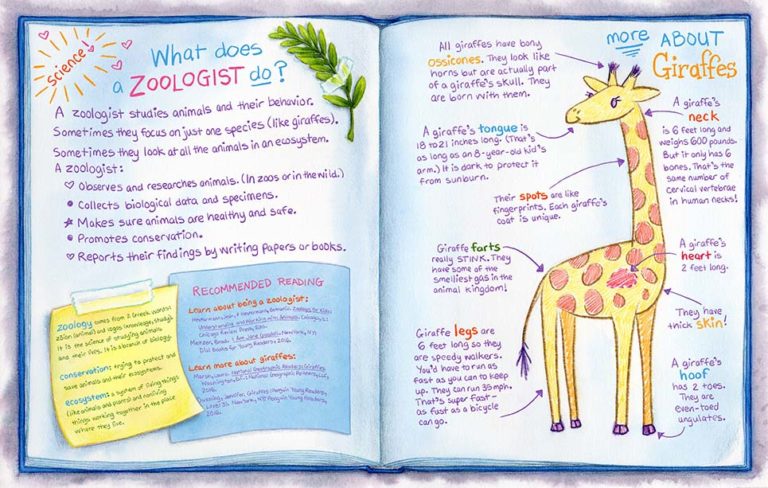 Science!
What does
a ZOOLOGIST do?
A zoologist studies animals and their behavior.
Sometimes they focus on just one species (like giraffes).
Sometimes they look at all the animals in an ecosystem.
A zoologist:
Observes and researches animals. (In zoos or in the wild.)
Collects biological data and specimens.
Makes sure animals are healthy and safe.
Promotes conservation.
Reports their findings by writing papers or books.
zoology comes from 2 Greek words:
zōion (animal) and logos (knowledge, study).
It is the science of studying animals
and their lives. It is a branch of biology.
conservation: trying to protect and
save animals and their ecosystems.
ecosystem: a system of living things
(like animals and plants) and nonliving
things working together in the place
where they live.
RECOMMENDED READING
Learn about being a zoologist:
Zoology for Kids:
Understanding and Working with Animals. Chicago:
Chicago Review Press, 2015.
I Am Jane Goodall. New York, NY:
Dial Books for Young Readers, 2016.
Learn more about giraffes:
Marsh, Laura. National Geographic Readers: Giraffes.
Washington D.C.: National Geographic Children's,
2016.
Jennifer. Giraffes (Penguin Young Readers,
Level 3). New York, NY: Penguin Young Readers,
more ABOUT
Giraffes
All giraffes have bony
ossicones. They look like
horns but are actually part
of a giraffe's skull. They
are born with them.
A giraffe's tongue is
18 to 21 inches long. (That's
as long as an 8-year-old kid's
arm.) It is dark to protect it
from sunburn.
A giraffe's
neck
is 6 feet long and
weighs 600 pounds.
But it only has 6
bones. That's the
same number of
cervical vertebrae
in human necks!
Their spots are like
fingerprints. Each giraffe's
coat is unique.
Giraffe farts
really STINK. They
have some of the
smelliest gas in the
animal kingdom!
A giraffe's
heart is
2 feet long.
They have
thick skin!
Giraffe legs are
6 feet long so they
are speedy walkers.
You'd have to run as
fast as you can to keep
up. They can run 35 mph.
That's super fast—
as fast as a bicycle
can go.
A giraffe's
hoof
has 2 toes.
They are
even-toed
ungulates.